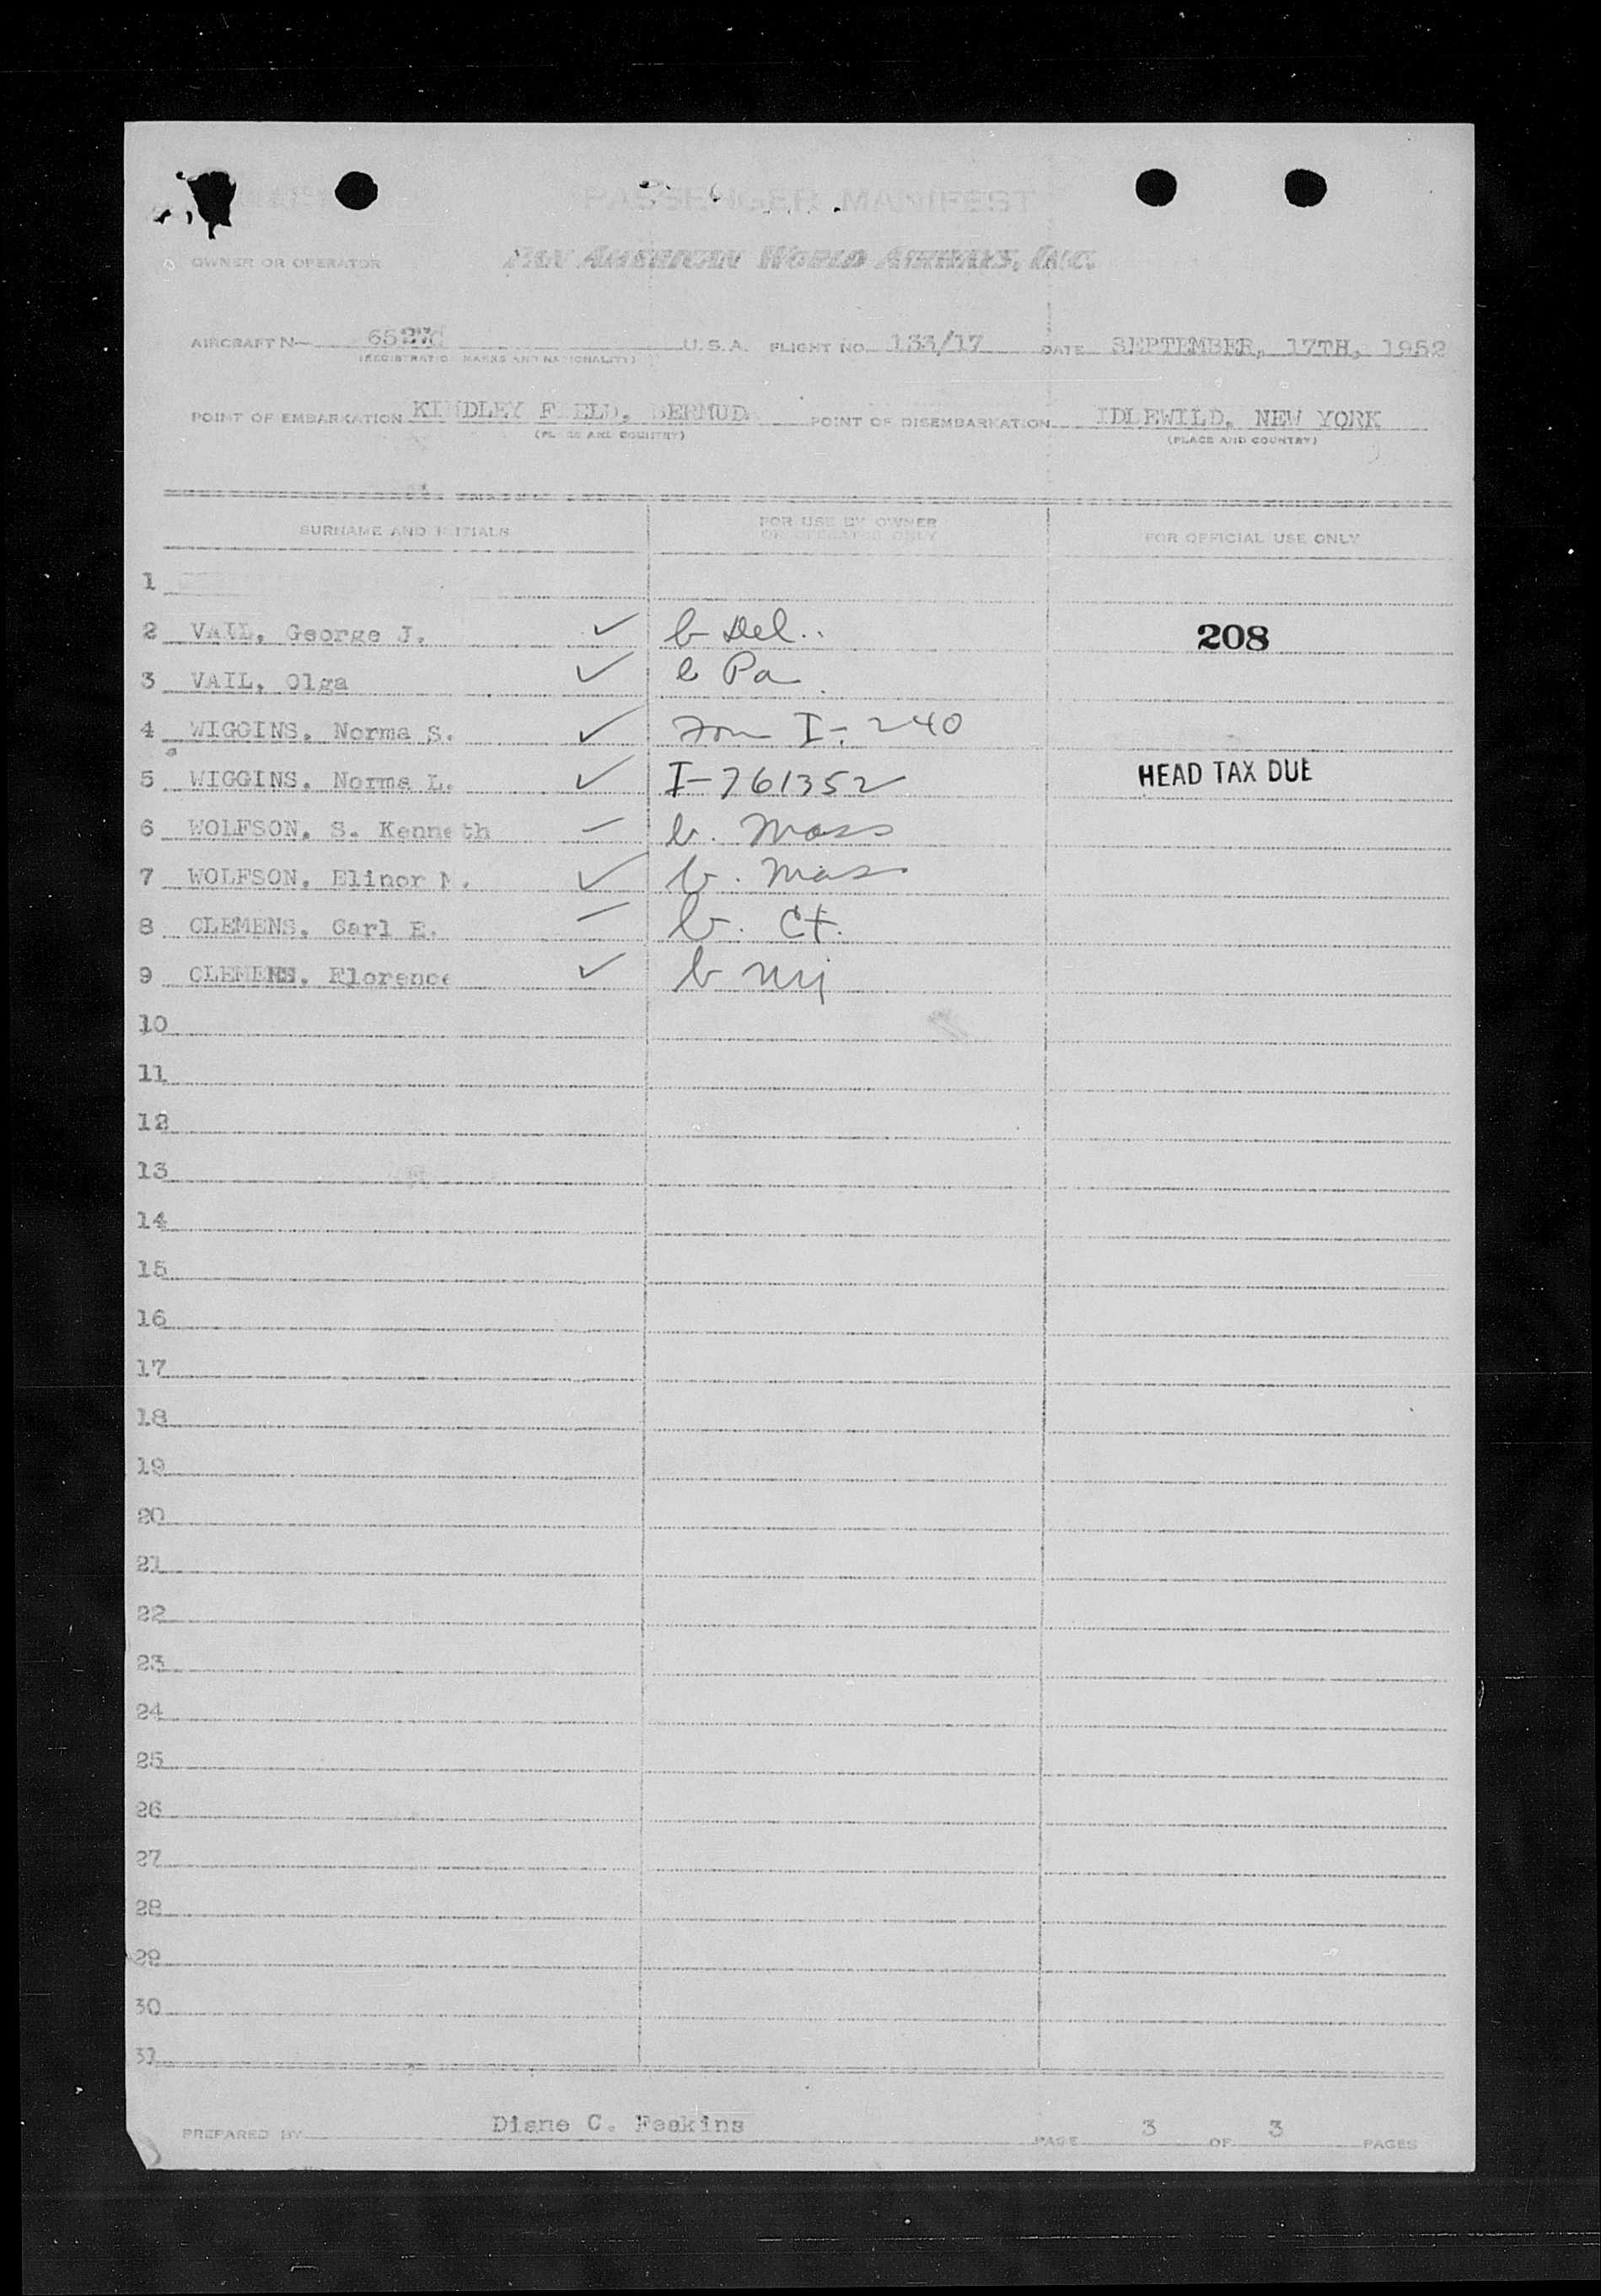 PASSENGER MANIFEST
OWNER OR OPERATOR PAN AMERICAN WORLD AIRWAYS, INC.
AIRCRAFT N— U.S.A. FLIGHT NO. 133/17 DATE SEPTEMBER, 17TH, 1952
(REGISTRATION MARKS AND NATIONALITY)
POINT OF EMBARKATION KINDLEY FIELD, BERMUDA POINT OF DISEMBARKATION IDLEWILD, NEW YORK
(PLACE AND COUNTRY) (PLACE AND COUNTRY)
SURNAME AND INITIALS FOR USE BY OWNER OR OPERATOR ONLY FOR OFFICIAL USE ONLY
1
2 VAIL, George J. ✓ b Del.. 208
3 VAIL, Olga ✓ b Pa
4 WIGGINS, Norma S. ✓ I-240
5 WIGGINS, Norma L. ✓ I-761352 HEAD TAX DUE
6 WOLFSON, S. Kenneth – b. Mass
7 WOLFSON, Elinor M. ✓ b. Mass
8 CLEMENS, Carl E. – b. Ct.
9 CLEMENS, Florence ✓ b NJ
10
11
12
13
14
15
16
17
18
19
20
21
22
23
24
25
26
27
28
29
30
31
PREPARED BY Diane C. Feskins PAGE 3 OF 3 PAGES